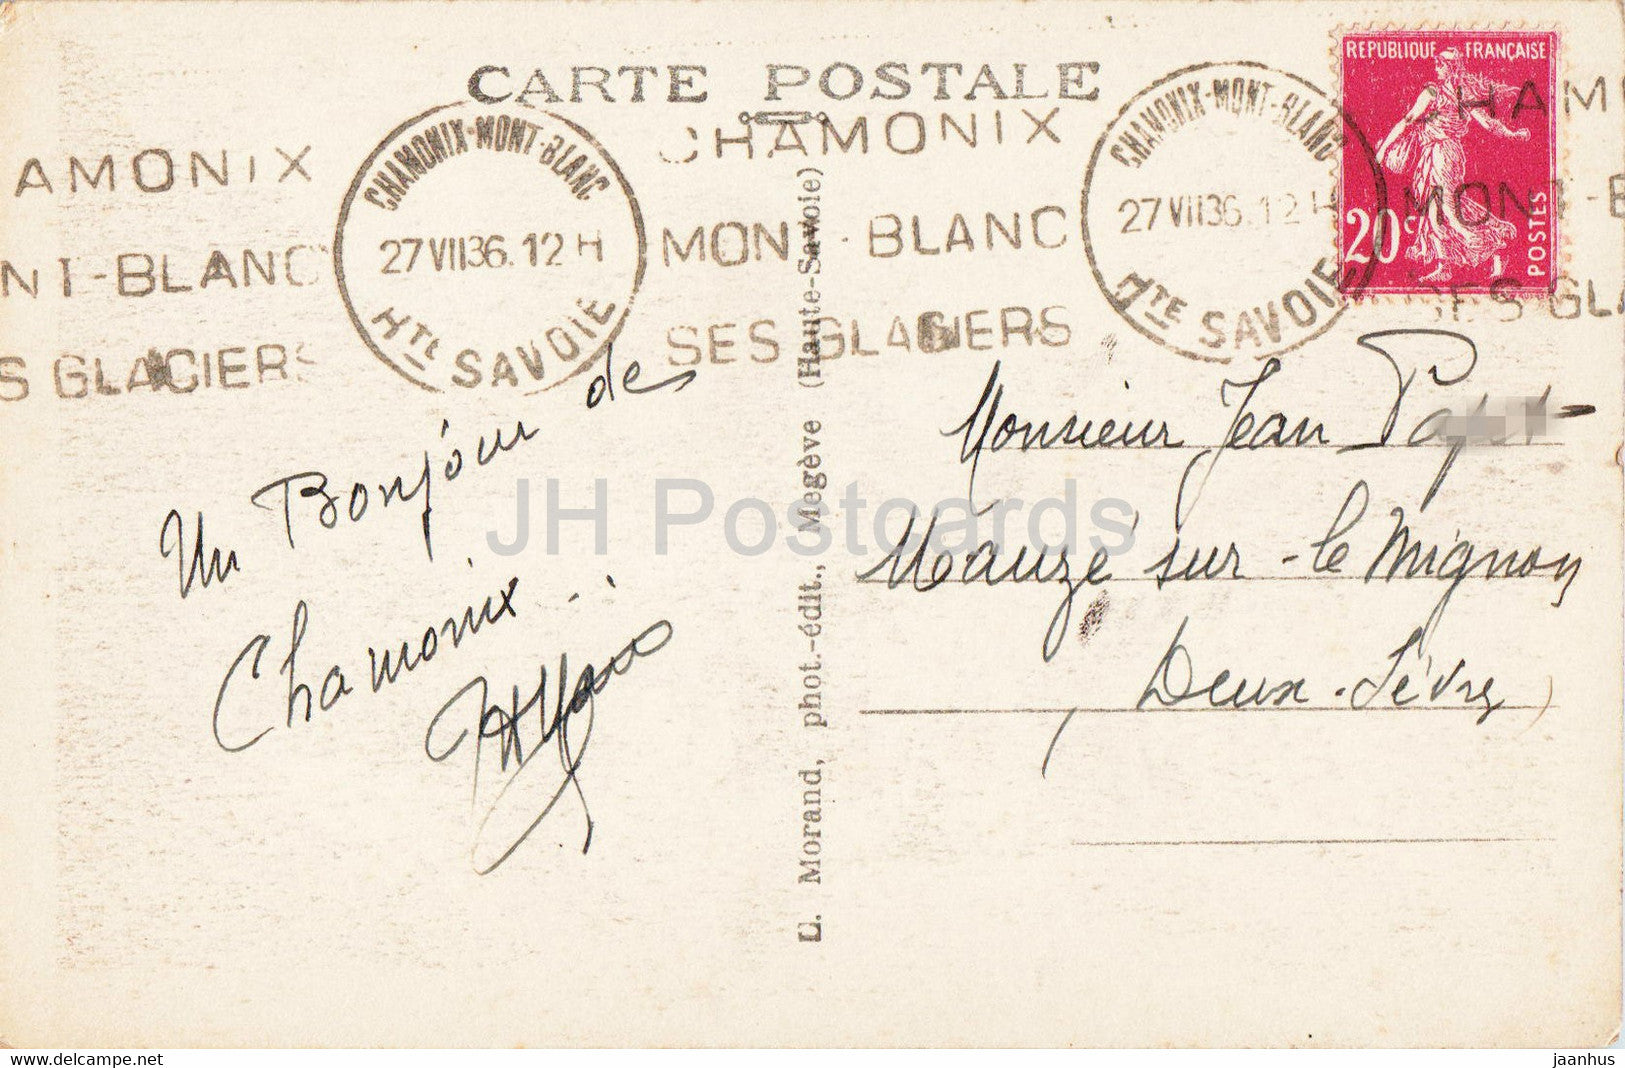 CARTE POSTALE
REPUBLIQUE FRANÇAISE
20c
POSTES
CHAMONIX-MONT-BLANC
27 VII 36. 12 H
HTE SAVOIE
CHAMONIX
MONT-BLANC
SES GLACIERS
CHAMONIX-MONT-BLANC
27 VII 36. 12 H
HTE SAVOIE
AMONIX
NT-BLANC
S GLACIERS
CHAM
MONT-B
SES GLA
Un Bonjour des
Chamonix
Monsieur Jean
Mauzé sur-le Mignon
Deux-Sèvres
L. Morand, phot.-édit., Megève (Haute-Savoie)
JH Postcards
www.delcampe.net
jaanhus